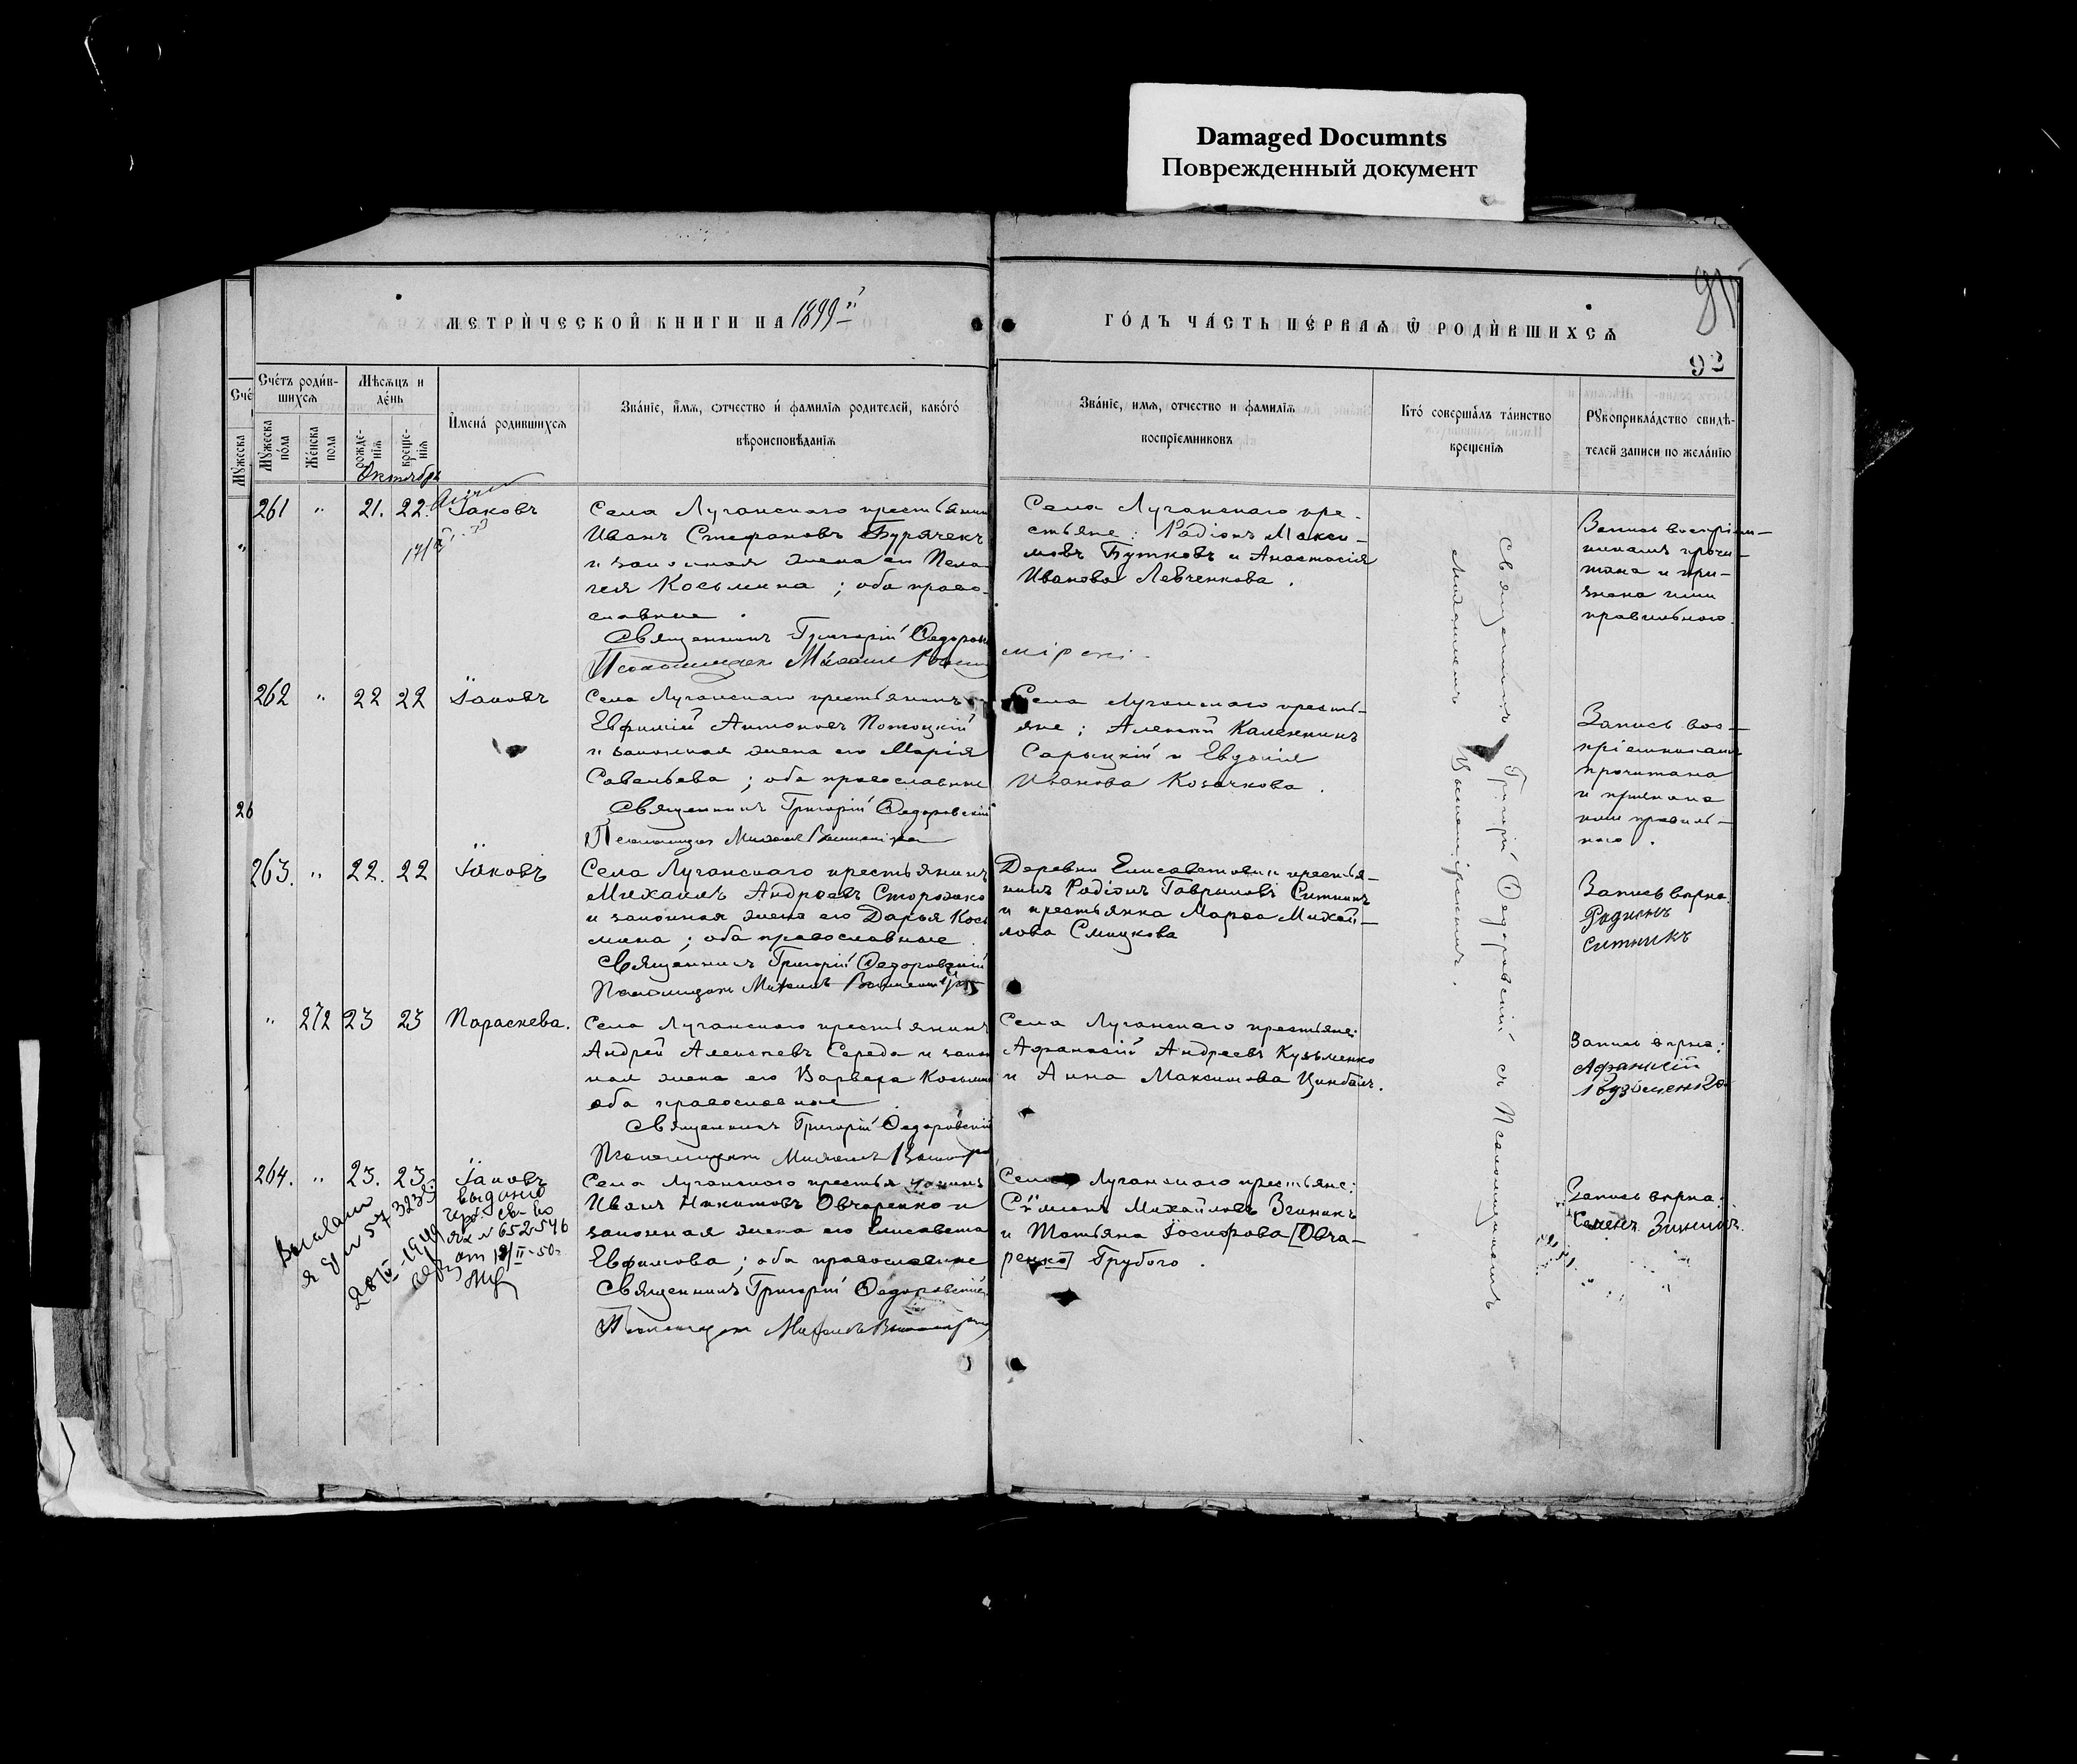 Damaged Documnts
Поврежденный документ
МЕТРИ́ЧЕСКОЙ КНИГИ НА 1899 й
ГО́ДЪ ЧА́СТЬ ПЕ́РВАѦ Ѡ РОДИ́ВШИХСѦ
92
Сче́
Мꙋжеска
Сче́тъ роди́в-
шихсѧ
Мꙋжеска по́ла
Же́нска пола
Мѣсѧцъ и
де́нь
рожде-
нїѧ
креще-
нїѧ
И҆мена́ родившихсѧ
Зва́нїе, и҆́мѧ, ѻтчество и҆ фамилїѧ родителей, како́гѡ
вѣроисповѣ́данїѧ
Зва́нїе, имѧ, отчество и фамилїѧ
воспрїемниковъ
Кто́ соверша́лъ та́инство
креще́нїѧ
Рꙋкоприкла́дство свидѣ́-
телей записи по жела́нїю
Октябрь
261 " 21. 22. Іаковъ
Села Луганскаго крестьянин
Иванъ Стефановъ Бурячекъ
и законная жена его Пела
гея Косьмина ; оба право-
славные .
Священникъ Григорій Ѳедоров
Псаломщикъ Михаилъ
Села Луганскаго кре-
стьяне: Радіонъ Макси-
мовъ Бутковъ и Анастасія
Иванова Левченкова .
Запись воспріем-
никамъ прочи-
тана и при-
знана ими
правильною.
262 " 22 22 Іаковъ
Села Луганскаго крестьянинъ
Евфимій Антоновъ Потоцкій
и законная жена его Марія
Савельева ; оба православные
Священникъ Григорій Ѳедоровскій
Псаломщикъ Михаилъ
Села Луганскаго кресть-
яне ; Алексій Калениковъ
Сарыцкій и Евдокія
Иванова Козачкова .
Запись вос-
пріемникамъ
прочитана
и признана
ими правиль-
ною .
26
263. " 22. 22 Іаковъ
Села Луганскаго крестьянинъ
Михаилъ Андреевъ Сторожко
и законная жена его Дарья Кось
мина ; оба православные .
Священникъ Григорій Ѳедоровскій
Псаломщикъ Михаилъ
Деревни Елисаветовки крестья-
нинъ Радіонъ Гавриловъ Ситникъ
и крестьянка Марѳа Михай-
лова
Запись вѣрна.
Родионъ
Ситникъ
" 272 23 23 Параскева.
Села Луганскаго крестьянинъ
Андрей Алексѣевъ Середа и закон
ная жена его Варвара Косьмина
оба православные .
Священникъ Григорій Ѳедоровскій
Псаломщикъ Михаилъ
Села Луганскаго крестьяне:
Аѳанасій Андреевъ Кузьменко
и Анна Максимова Цимбалъ.
Запись вѣрна:
Афанасій
Кузьменко
264. " 23. 23. Іаковъ
Села Луганскаго крестьянинъ
Иванъ Никитовъ Овчаренко и
законная жена его Елисавета
Евфимова ; оба православные
Священникъ Григорій Ѳедоровскій
Псаломщикъ Михаилъ
Села Луганскаго крестьяне:
Сѵмеонъ Михайловъ
и Татьяна Іосифова [Овча-
ренко] Грубого .
Запись вѣрна:
Семенъ
выдано
№ 652546
Священникъ Григорій Ѳедоровскій съ Псаломщикомъ
Михаиломъ